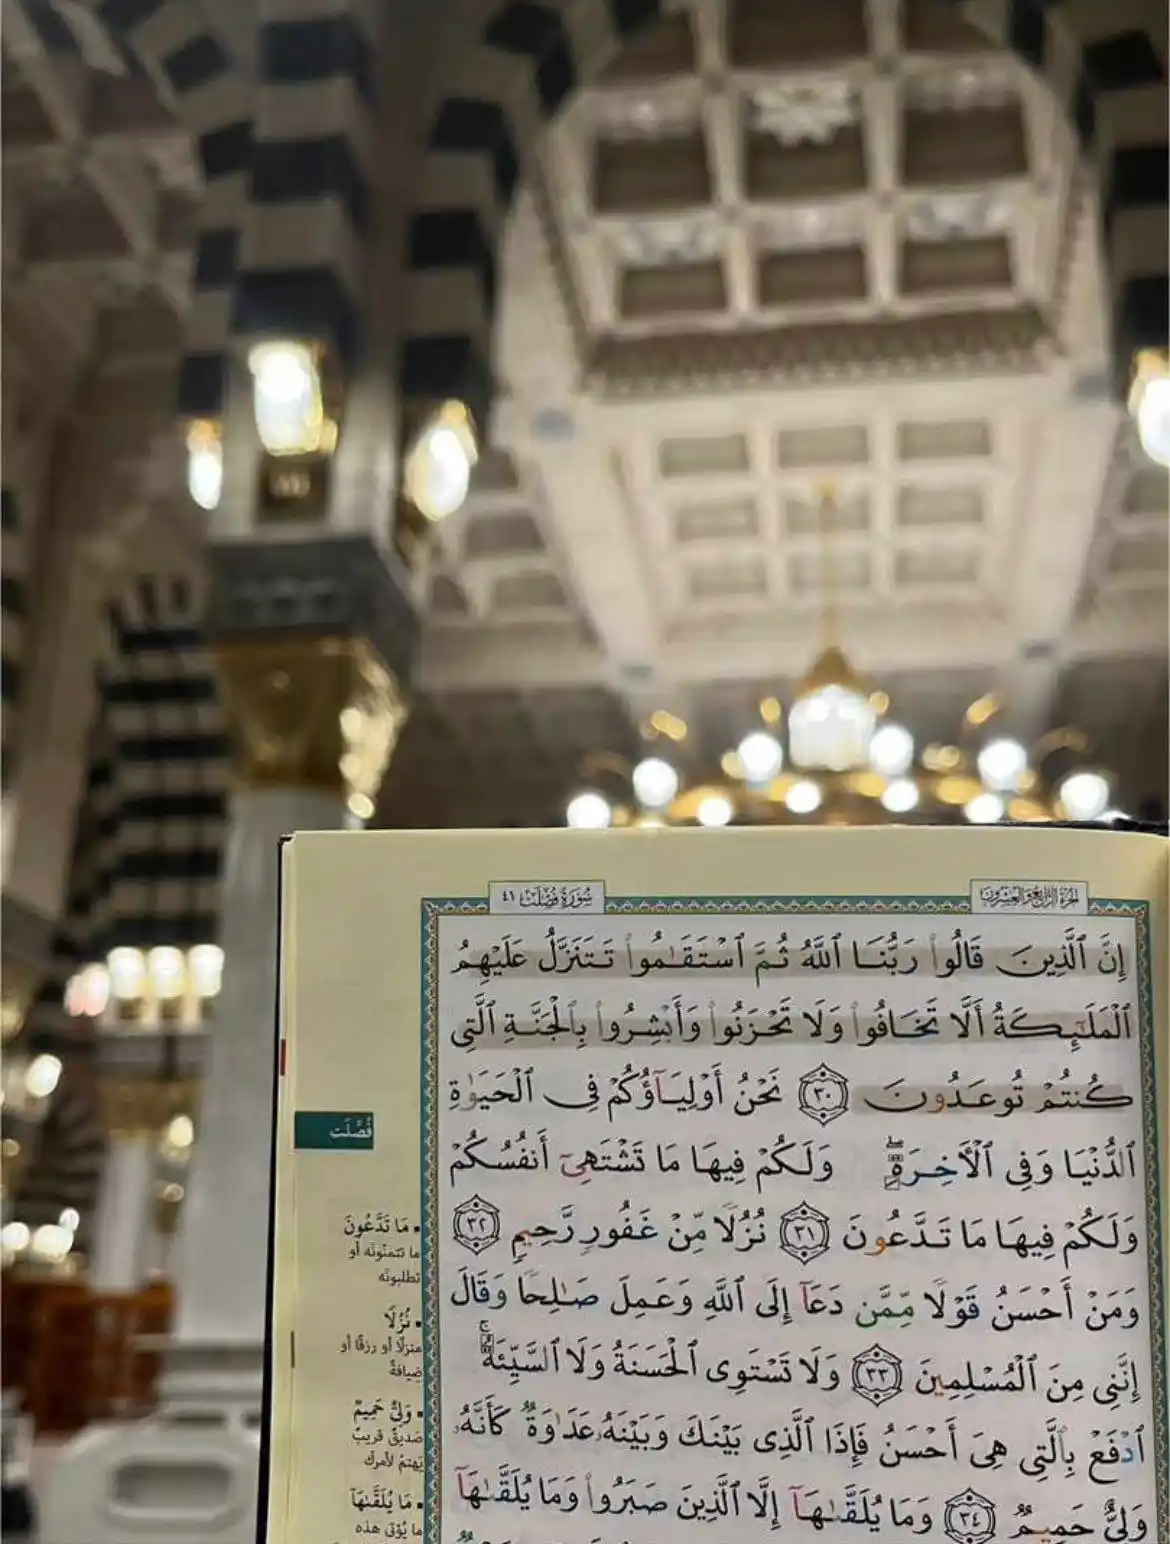 الجزء الرابع والعشرون
سورة فصلت ٤١
إِنَّ ٱلَّذِينَ قَالُوا۟ رَبُّنَا ٱللَّهُ ثُمَّ ٱسْتَقَـٰمُوا۟ تَتَنَزَّلُ عَلَيْهِمُ
ٱلْمَلَـٰٓئِكَةُ أَلَّا تَخَافُوا۟ وَلَا تَحْزَنُوا۟ وَأَبْشِرُوا۟ بِٱلْجَنَّةِ ٱلَّتِى
كُنتُمْ تُوعَدُونَ ٣٠ نَحْنُ أَوْلِيَآؤُكُمْ فِى ٱلْحَيَوٰةِ
ٱلدُّنْيَا وَفِى ٱلْـَٔاخِرَةِ ۖ وَلَكُمْ فِيهَا مَا تَشْتَهِىٓ أَنفُسُكُمْ
وَلَكُمْ فِيهَا مَا تَدَّعُونَ ٣١ نُزُلًا مِّنْ غَفُورٍ رَّحِيمٍ ٣٢
وَمَنْ أَحْسَنُ قَوْلًا مِّمَّن دَعَآ إِلَى ٱللَّهِ وَعَمِلَ صَـٰلِحًا وَقَالَ
إِنَّنِى مِنَ ٱلْمُسْلِمِينَ ٣٣ وَلَا تَسْتَوِى ٱلْحَسَنَةُ وَلَا ٱلسَّيِّئَةُ ۚ
ٱدْفَعْ بِٱلَّتِى هِىَ أَحْسَنُ فَإِذَا ٱلَّذِى بَيْنَكَ وَبَيْنَهُۥ عَدَٰوَةٌ كَأَنَّهُۥ
وَلِىٌّ حَمِيمٌ ٣٤ وَمَا يُلَقَّىٰهَآ إِلَّا ٱلَّذِينَ صَبَرُوا۟ وَمَا يُلَقَّىٰهَآ
فُصِّلَت
• مَا تَدَّعُونَ
ما تتمنونه أو
تطلبونه
• نُزُلًا
منزلًا أو رزقًا أو
ضيافةً
• وَلِيٌّ حَمِيمٌ
صديقٌ قريبٌ
يهتمُ لأمرك
• مَا يُلَقَّىٰهَآ
ما يُؤتى هذه